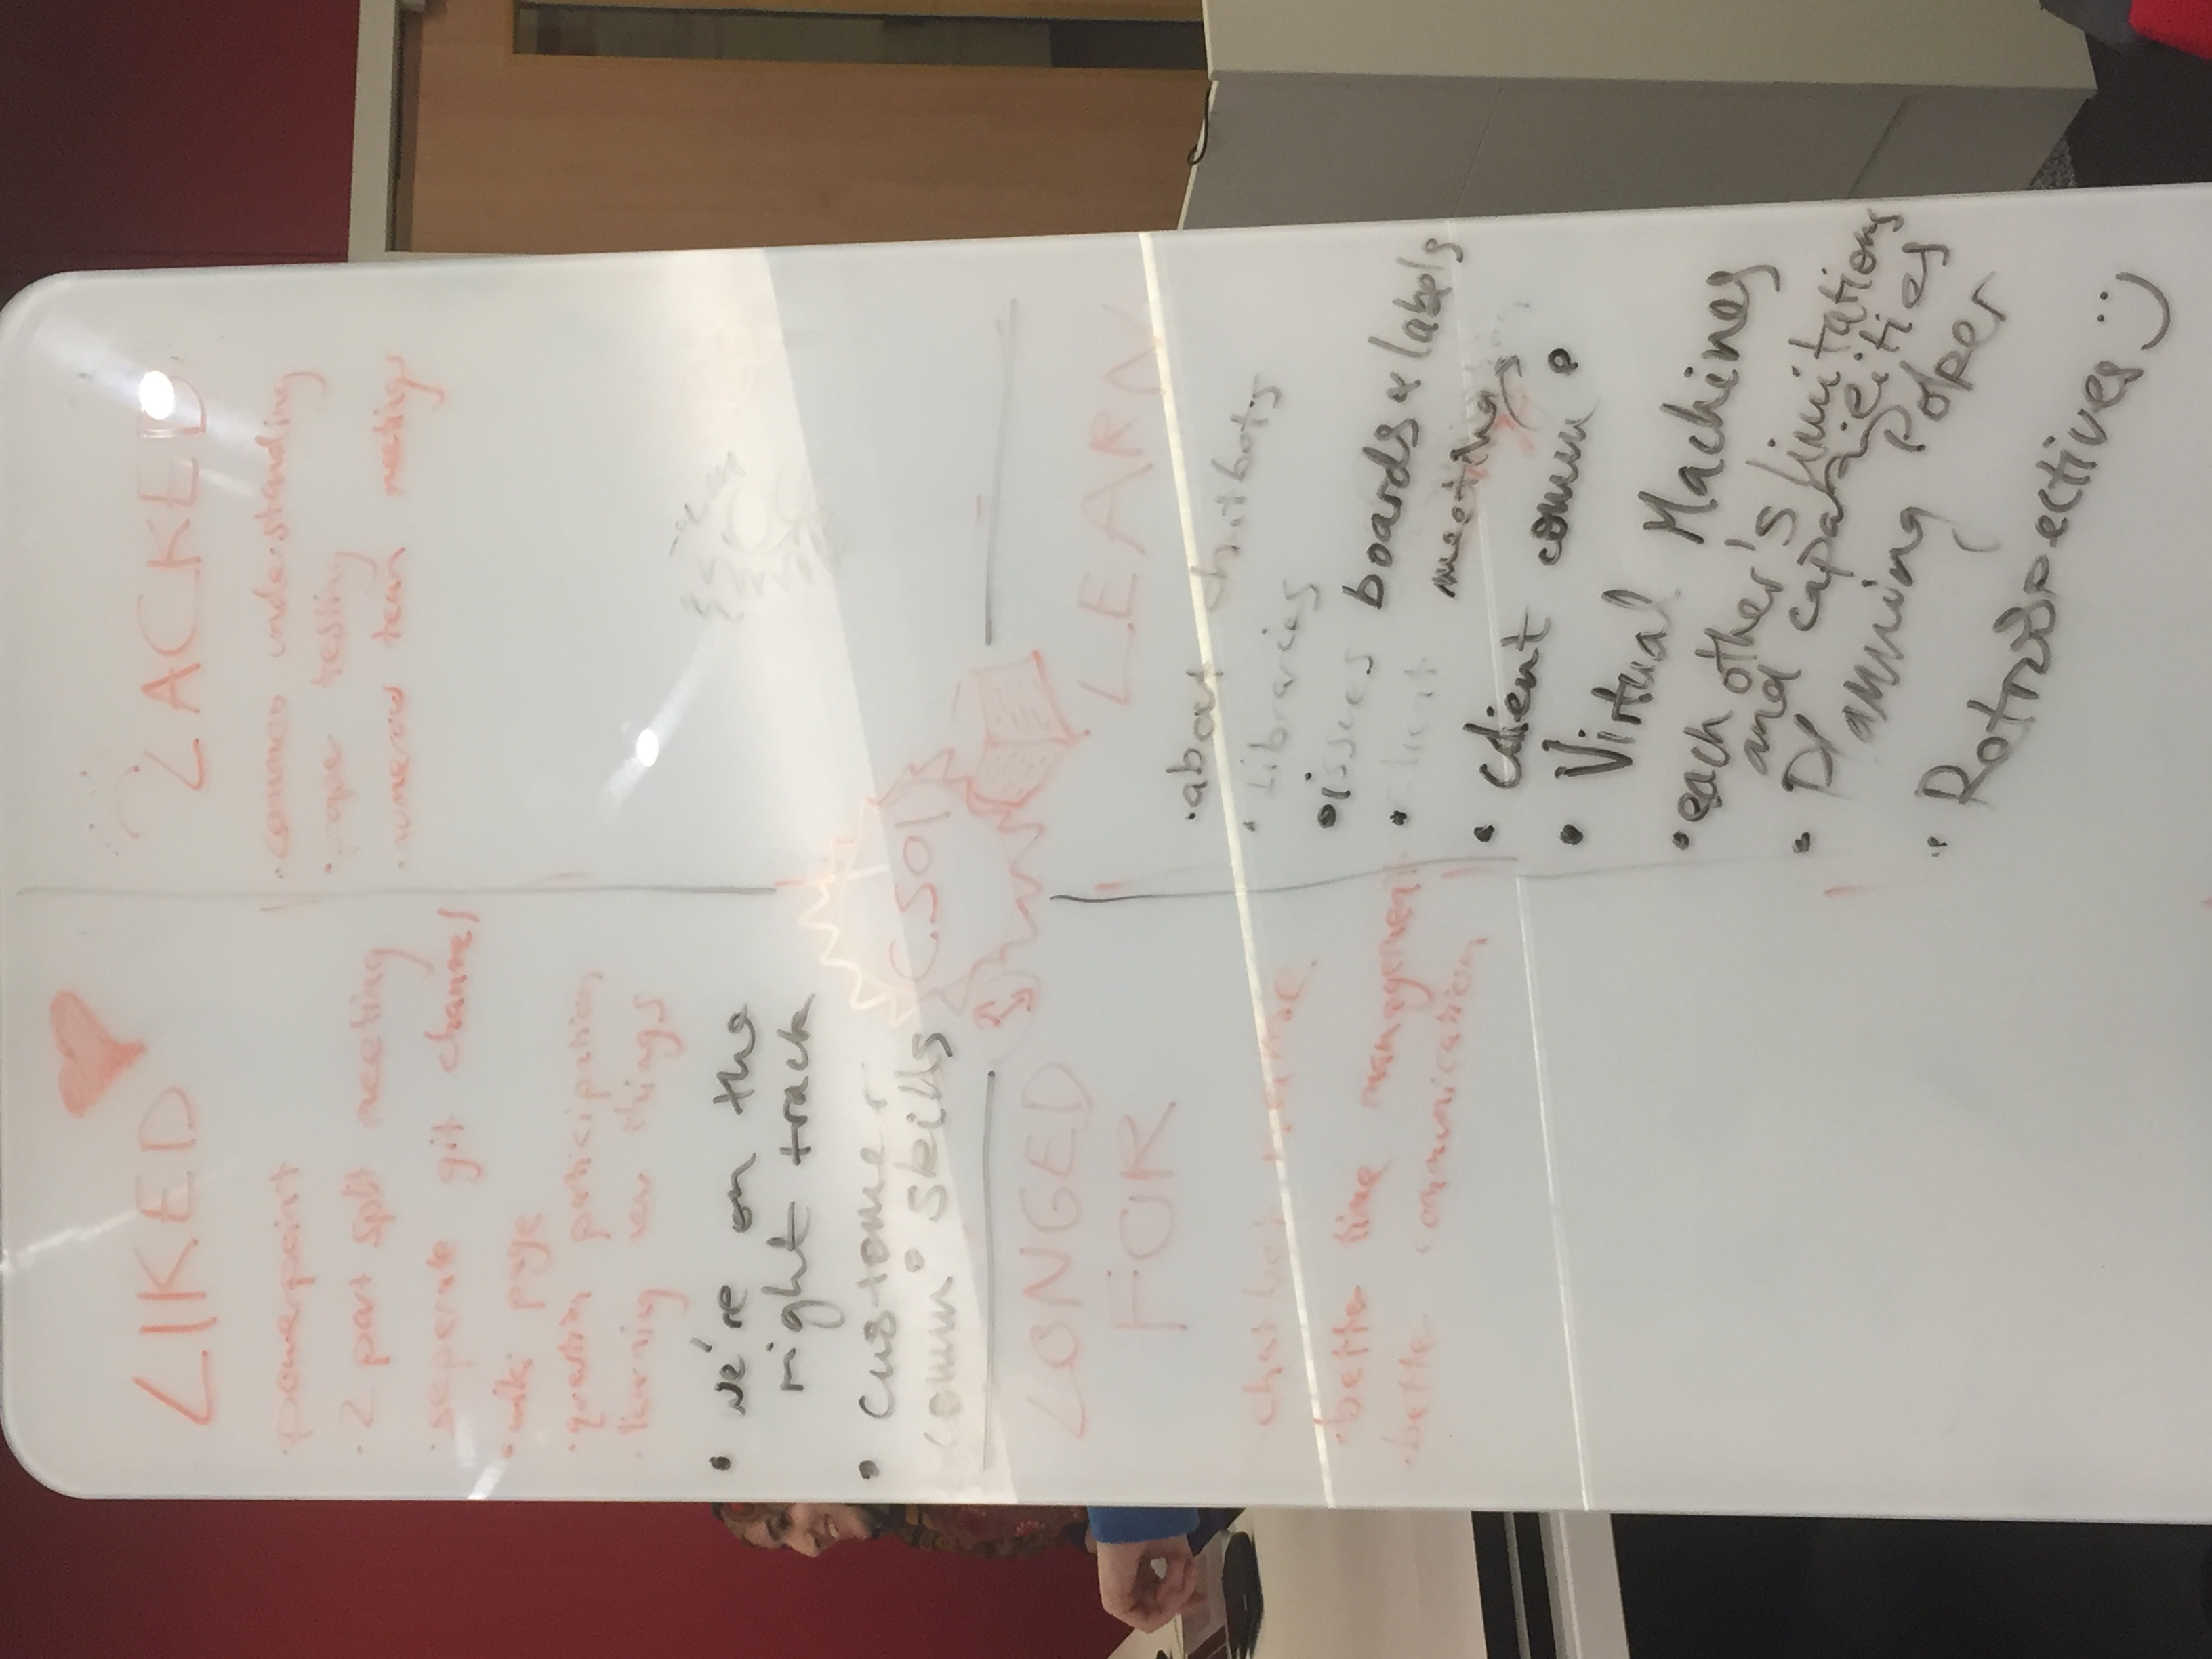 LIKED
·powerpoint
·2 part split meeting
·seperate git channel
·wiki page
·question participation
·learning new things
• we're on the
right track
• customer
comm° skills
LACKED
·common understanding
·proper testing
·numerous team meetings
CS01
LONGED
FOR
chatbot name
·better time management
·better communication
LEARN
·about chatbots
·Libraries
•issues boards & labels
•client meetings
• client comm°
• Virtual Machines
•each other's limitations
and capacities
• Planning Poker
• Retrospectives :)